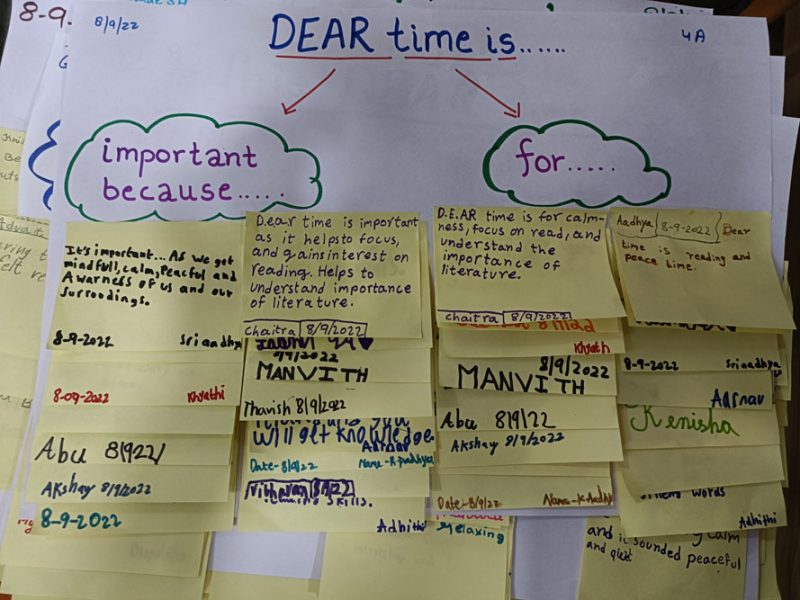 8-9.
8/9/22
DEAR time is......
4A
important
because.....
for.....
It's important... As we get
mindfull, calm, Peacful and
Awarness of us and our
surroodings.
8-9-2022 Sriaadhya
8-09-2022 Khyathi
Abu 8/9/22/
Akshay 8/9/2022
8-9-2022
D.e.a.r time is important
as it helps to focus,
and gains interest on
reading. Helps to
understand importance
of literature.
Chaitra 8/9/2022
9/9/2022
MANVITH
Thanish 8/9/2022
will get knowledge.
Adrnav
Date-8/9/22
Vibhavan 8/9/22
skills.
Adhithi
D.E.A.R time is for calm-
ness, focus on read, and
understand the
importance of
literature.
Chaitra 8/9/2022
Khyath
8/9/2022
MANVITH
Abu 8/9/22
Akshay 8/9/2022
Date:-8/9/22 Name-K-Aadhy
Relaxing
Aadhya 8-9-2022 Dear
time is reading and
peace time.
8-9-2022 Sriaadhya
Aarnav
Kenisha
words
Adhithi
calm
and it sounded peaceful
and quit